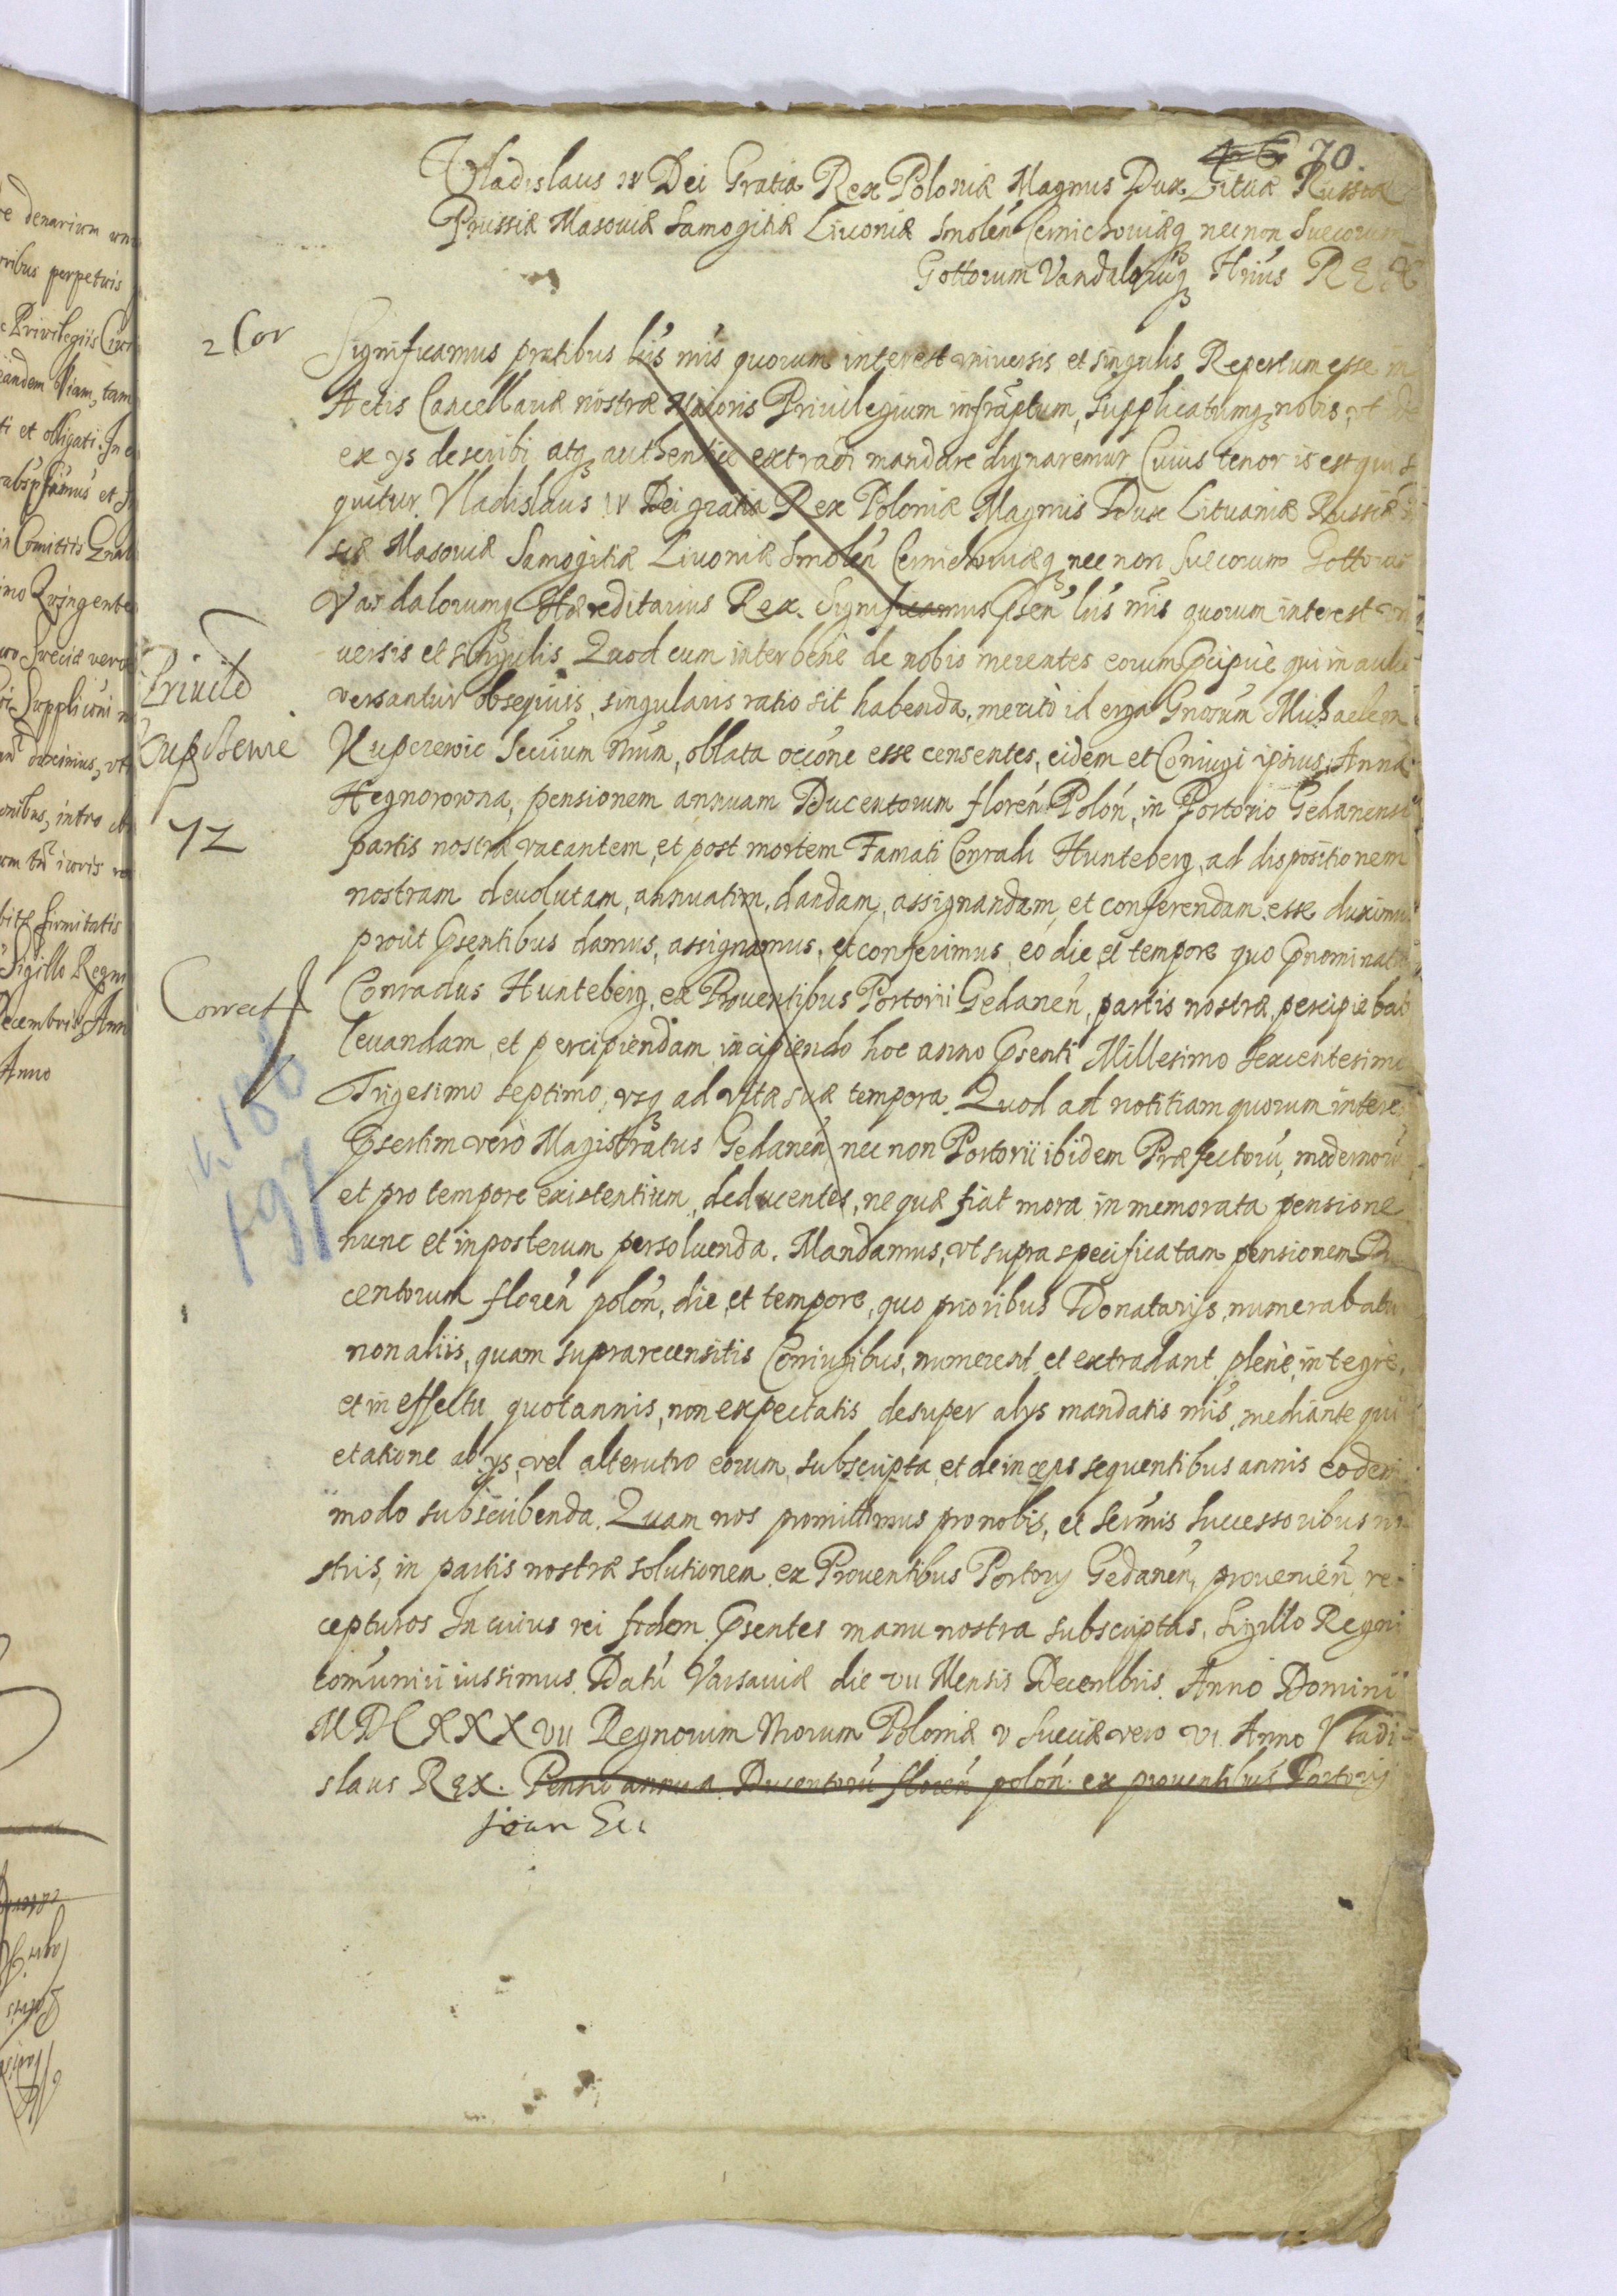 70.
Vladislaus IV Dei Gratia Rex Poloniæ Magnus Dux Lituæ Russiæ
Prussiæ Masouiæ Samogitiæ Liuoniæ Smolen̄ Cernichouiæq nec non Suecorum
Gottorum Vandalorūq Hrius REX
2 Cor
Significamus pntibus lris nris quorum interest vniuersis et singulis Repertum esse in
Actis Cancellariæ nostræ Maioris Priuilegium infrascptum, supplicatumq nobis, vt
ex ys describi atq authentice extradi mandare dignaremur Cuius tenor is est qui se
quitur. Vladislaus IV Dei gratia Rex Poloniæ Magnus Dux Lituaniæ Russiæ
siæ Masouiæ Samogitiæ Liuoniæ Smolen̄ Cernichouiæq nec non Suecorum Gottorum
Vandalorumq Hæreditarius Rex. Significamus Psen̄ lris nris quorum interest vni
uersis et singulis. Quod cum inter bene de nobis merentes eorum Pcipue qui in aulæ
Priuile
versantur obsequiis, singularis ratio sit habenda, merito id erga Gnosum Michaelem
Kupcewic Secrium nrum, oblata occone esse censentes, eidem et Coniugi ipsius, Annæ
Hegnorowna, pensionem annuam Ducentorum floren̄ Polon̄, in Portorio Gedanensi
72
partis nostræ vacantem, et post mortem Famati Conradi Hunteberg, ad dispositionem
nostram deuolutam, annuatim, dandam, assignandam, et conferendam esse duximus
prout Psentibus damus, assignamus, et conferimus, eo die et tempore quo Pnominatus
Correct
Conradus Hunteberg, ex Prouentibus Portorii Gedanen̄, partis nostræ, percipiebat
leuandam et percipiendam incipiendo hoc anno Psenti Millesimo Sexcentesimo
Trigesimo septimo, vsq ad vitæ suæ tempora. Quod ad notitiam quorum interest
Psertim vero Magistratus Gedanen̄ nec non Portorii ibidem Præfectorū, modernorū
et pro tempore existentium, deducentes, ne quæ fiat mora in memorata pensione
197
nunc et in posterum persoluenda. Mandamus, vt supra specificatam pensionem Du
centorum floren̄ polon̄, die et tempore, quo prioribus Donatarys, numerabatur
non aliis, quam suprarecensitis Coniugibus, numerent et extradant plene, integre,
et in effectu quotannis, non expectatis desuper alys mandatis nris, mediante qui
etatione ab ys, vel alterutro eorum, subscripta, et deinceps sequentibus annis eodem
modo subscribenda. Quam nos promittimus pro nobis, et Sermis Successoribus no
stris, in partis nostræ solutionem ex Prouentibus Portory Gedanen̄, prouenien̄ re
cepturos In cuius rei fidem Psentes manu nostra subscriptas, Sigillo Regni
comuniri iussimus. Datū Varsauiæ die VII Mensis Decembris Anno Domini
MDCXXXVII Regnorum Nrorum Poloniæ V Sueciæ vero VI. Anno Vladi
slaus Rex. Pensio annua Ducentorū floren̄ polon̄ ex prouentibus Portorij